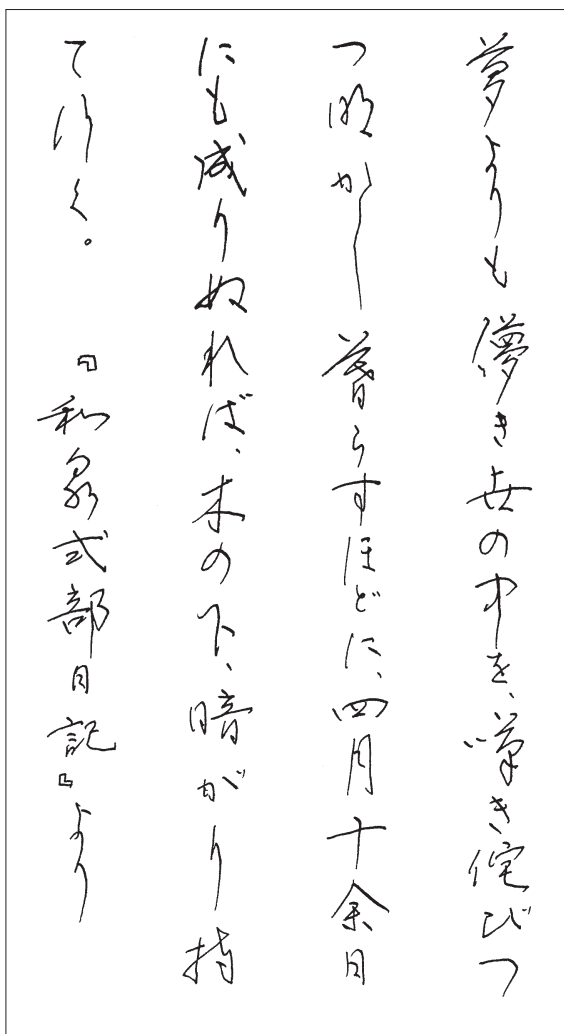 夢よりも儚き世の中を、嘆き侘びつ
つ明かし暮らすほどに、四月十余日
にも成りぬれば、木の下、暗がり持
て行く。　『和泉式部日記』より